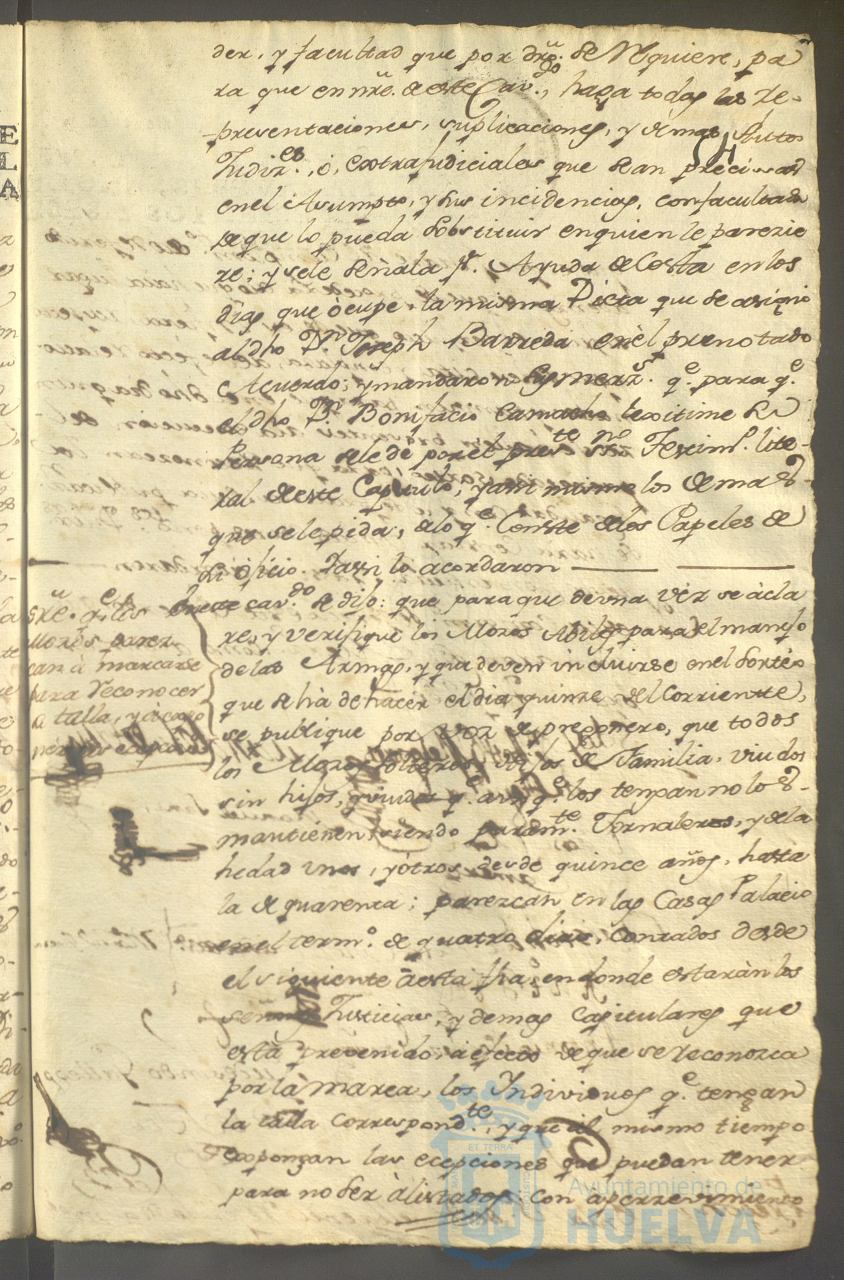 der, y facultad que por dro. se requiere, pa
ra que en nre. de este Cavdo., haga todas las Re-
presentaciones, suplicaciones, y demas Autos
54
Judizes., ò, extrajudiciales que sean precisas
en el Asumpto, y sus incidencias, con facultad
de que lo pueda sobstituir en quien le parezie
re; y se le señala pr. Ayuda de Costa en los
dias que òcupe, la misma Dieta que se asignò
al dho Dn. Joseph Barreda en èl prenotado
Acuerdo; y mandaron sus mercs. qe. para qe.
el dho Dn. Bonifacio Camacho lexitime su
Persona se le dè por el preste. ssno Textimo. lite-
ral de este Capitulo, y assi mismo los demas
que se le pida, de lo qe. Conste de los Papeles de
su òficio. Y assi lo acordaron
Sre. qe. los
Mozos parez
can à marcarse
para reconocer
la talla, y à expo
ner sus ecepcio
En este cavdo. se dijo: que para que de una vez se àcla
re, y verifique los Mozos abiles para el manejo
de las Armas, y que deven incluirse en el sortèo
que se hà de hacer el dia quinze del Corriente,
se publique por voz de pregonero, que todos
los Mozos solteros hijos de Familia, viudos
sin hijos, y viudos qe. aunqe. los tengan no los
mantienen, siendo puramte. Jornaleros, y de la
hedad unos, y òtros desde quince años, hasta
la de quarenta; parezcan en las Casas Palacio
en el termo. de quatro dias, Contados desde
el siguiente à esta fha, en donde estaràn los
señores Justicias, y demas Capitulares que
està prevenido, à efecto de que se reconozca
por la marca, los Individuos qe. tengan
la talla correspondte., y que àl mismo tiempo
expongan las ecepciones que puedan tener
para no ser àlistados; con apercevimiento
Ayuntamiento de
HUELVA